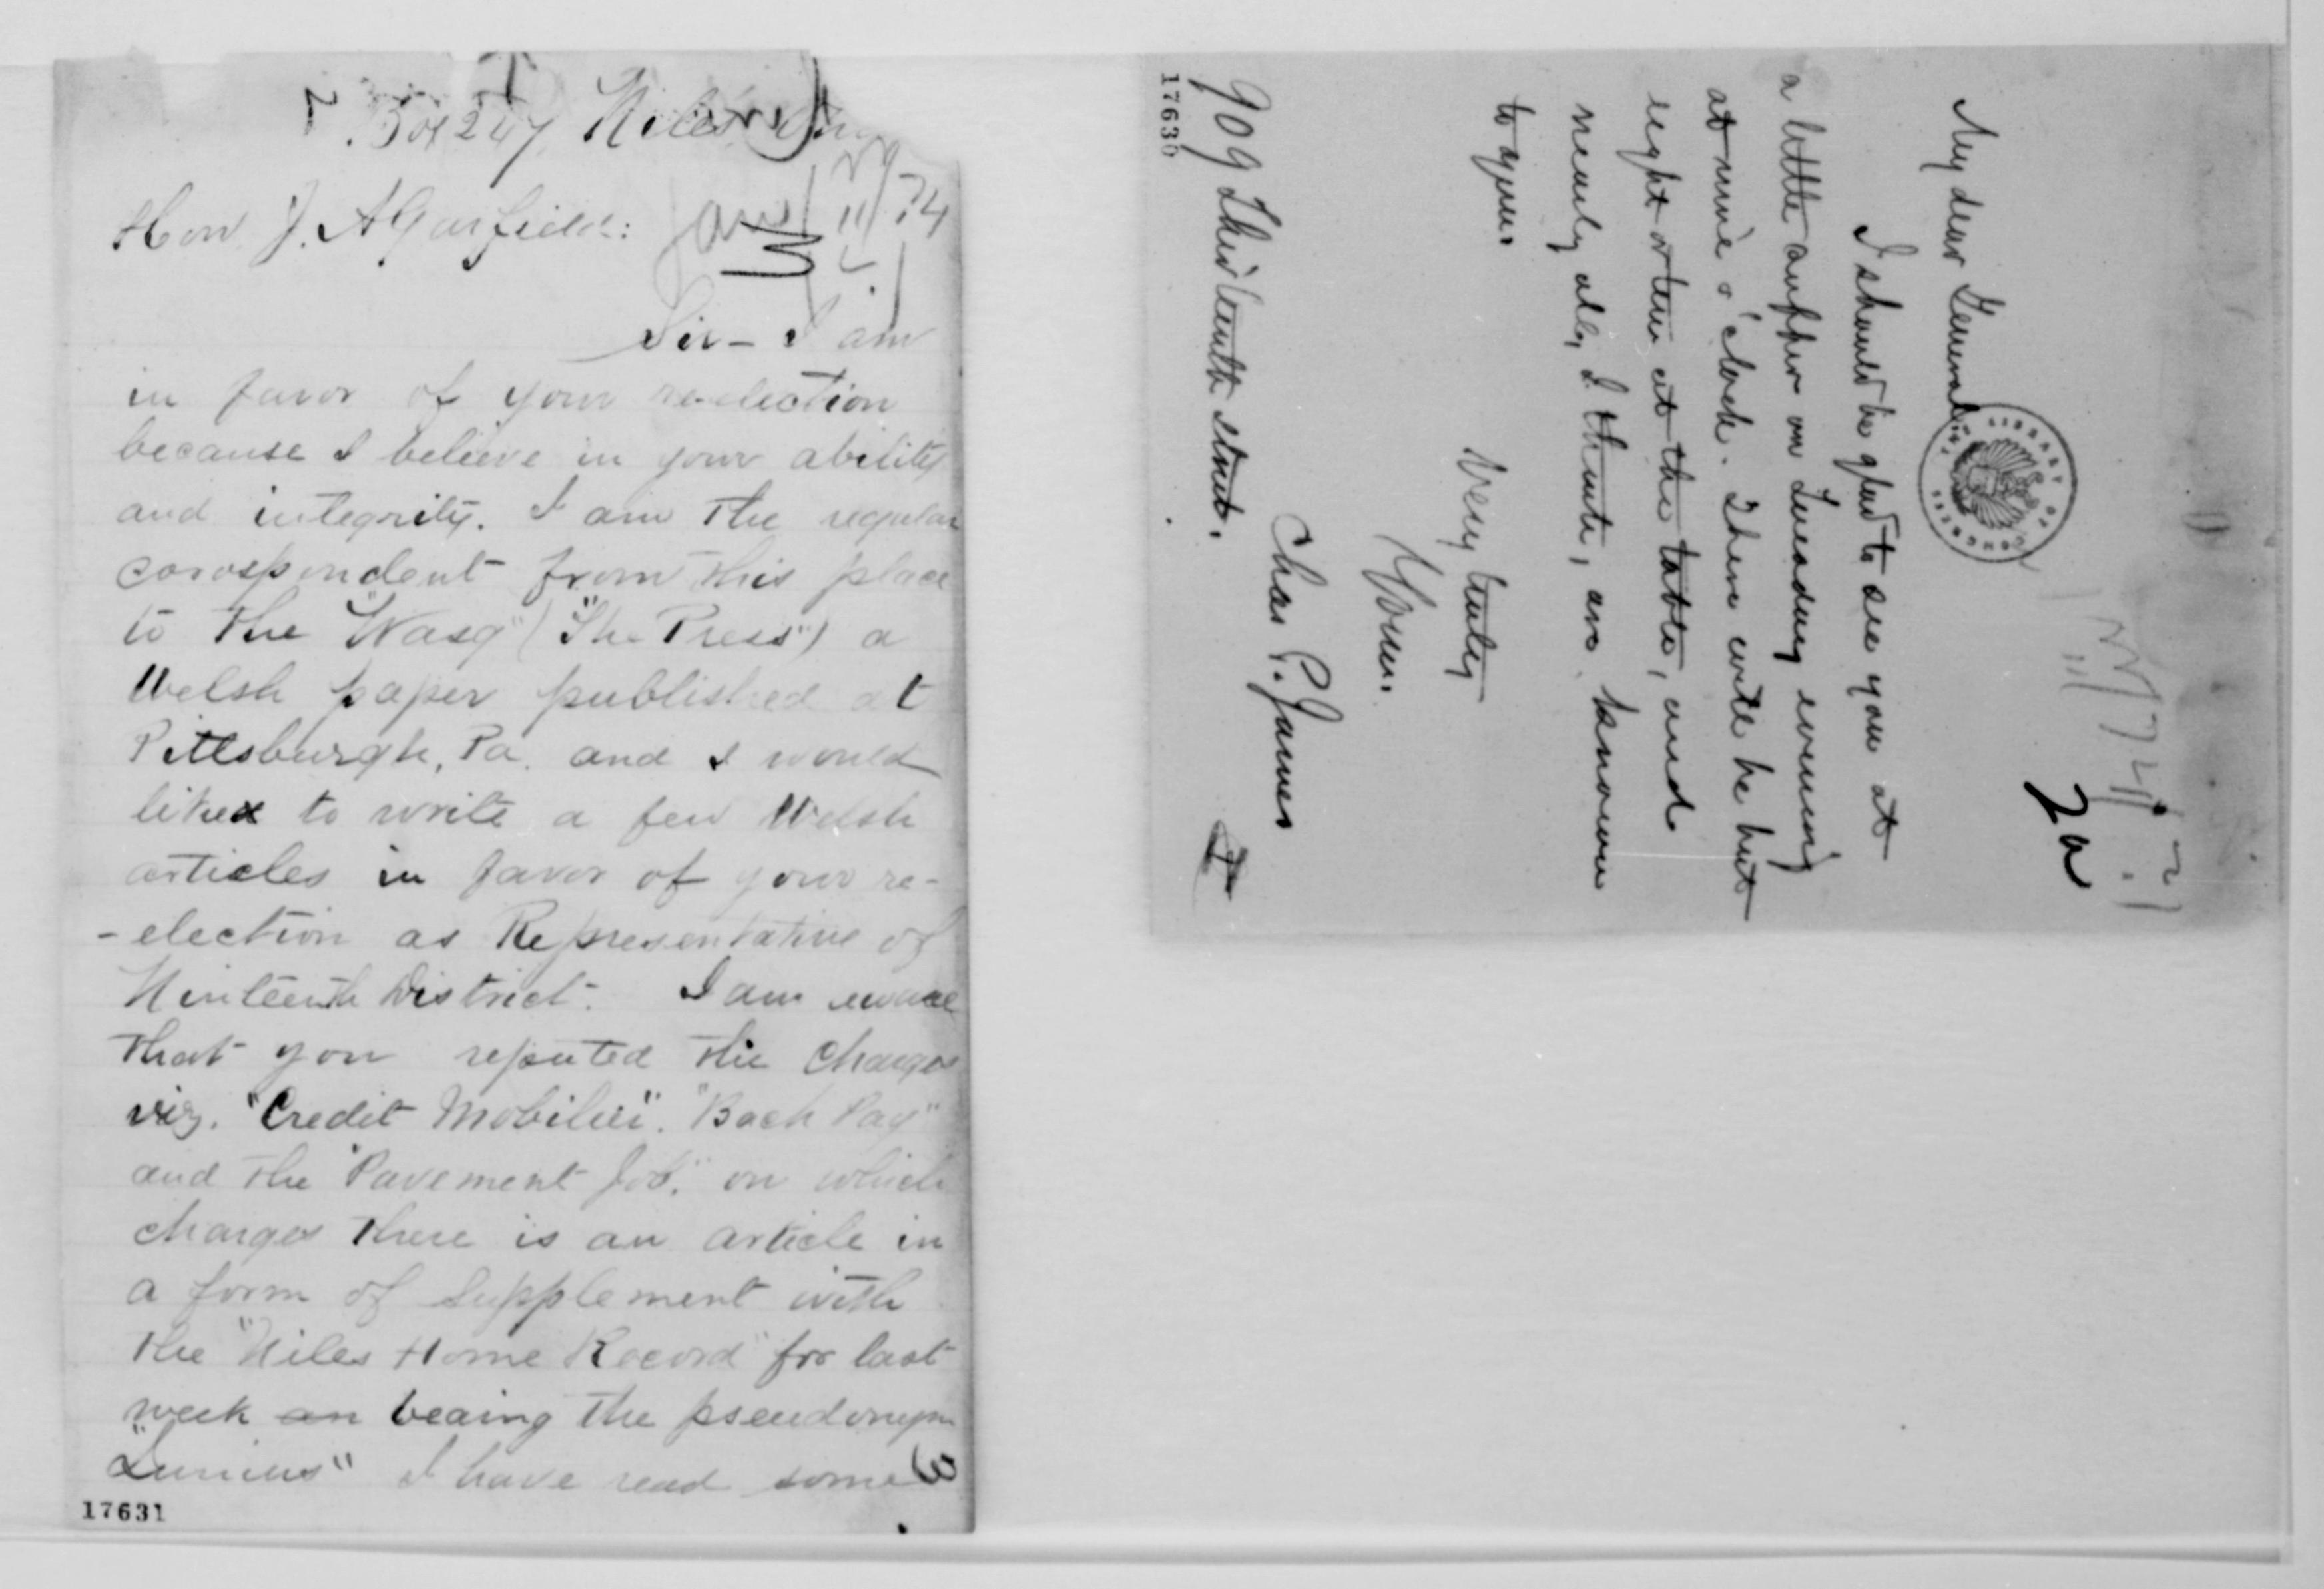 2
Box 247, Niles,
Hon. J. A Garfield:
Jan / 74
Sir – I am
in favor of your re-election
because I believe in your ability
and integrity. I am the regular
corospondent from this place
to the "Wasg" ("The Press") a
Welsh paper published at
Pittsburgh, Pa. and I would
like to write a few Welsh
articles in favor of your re-
-election as Representative of
Ninteenth District. I am aware
that you reputed the charges
viz. "Credit Mobilier". "Back Pay"
and the "Pavement Job." on which
charges there is an article in
a form of Supplement with
the "Niles Home Record" for last
week an beaing the pseudonym
"Junius" I have read some
3
17631
My dear General:
I should be glad to see you at
a little supper on Tuesday evening
at nine o'clock. There will be but
eight or ten at the table, and
nearly all, I think, are known
to you.
Very truly
Yours.
Chas P. James
909 Thirteenth street.
17630
LIBRARY OF CONGRESS